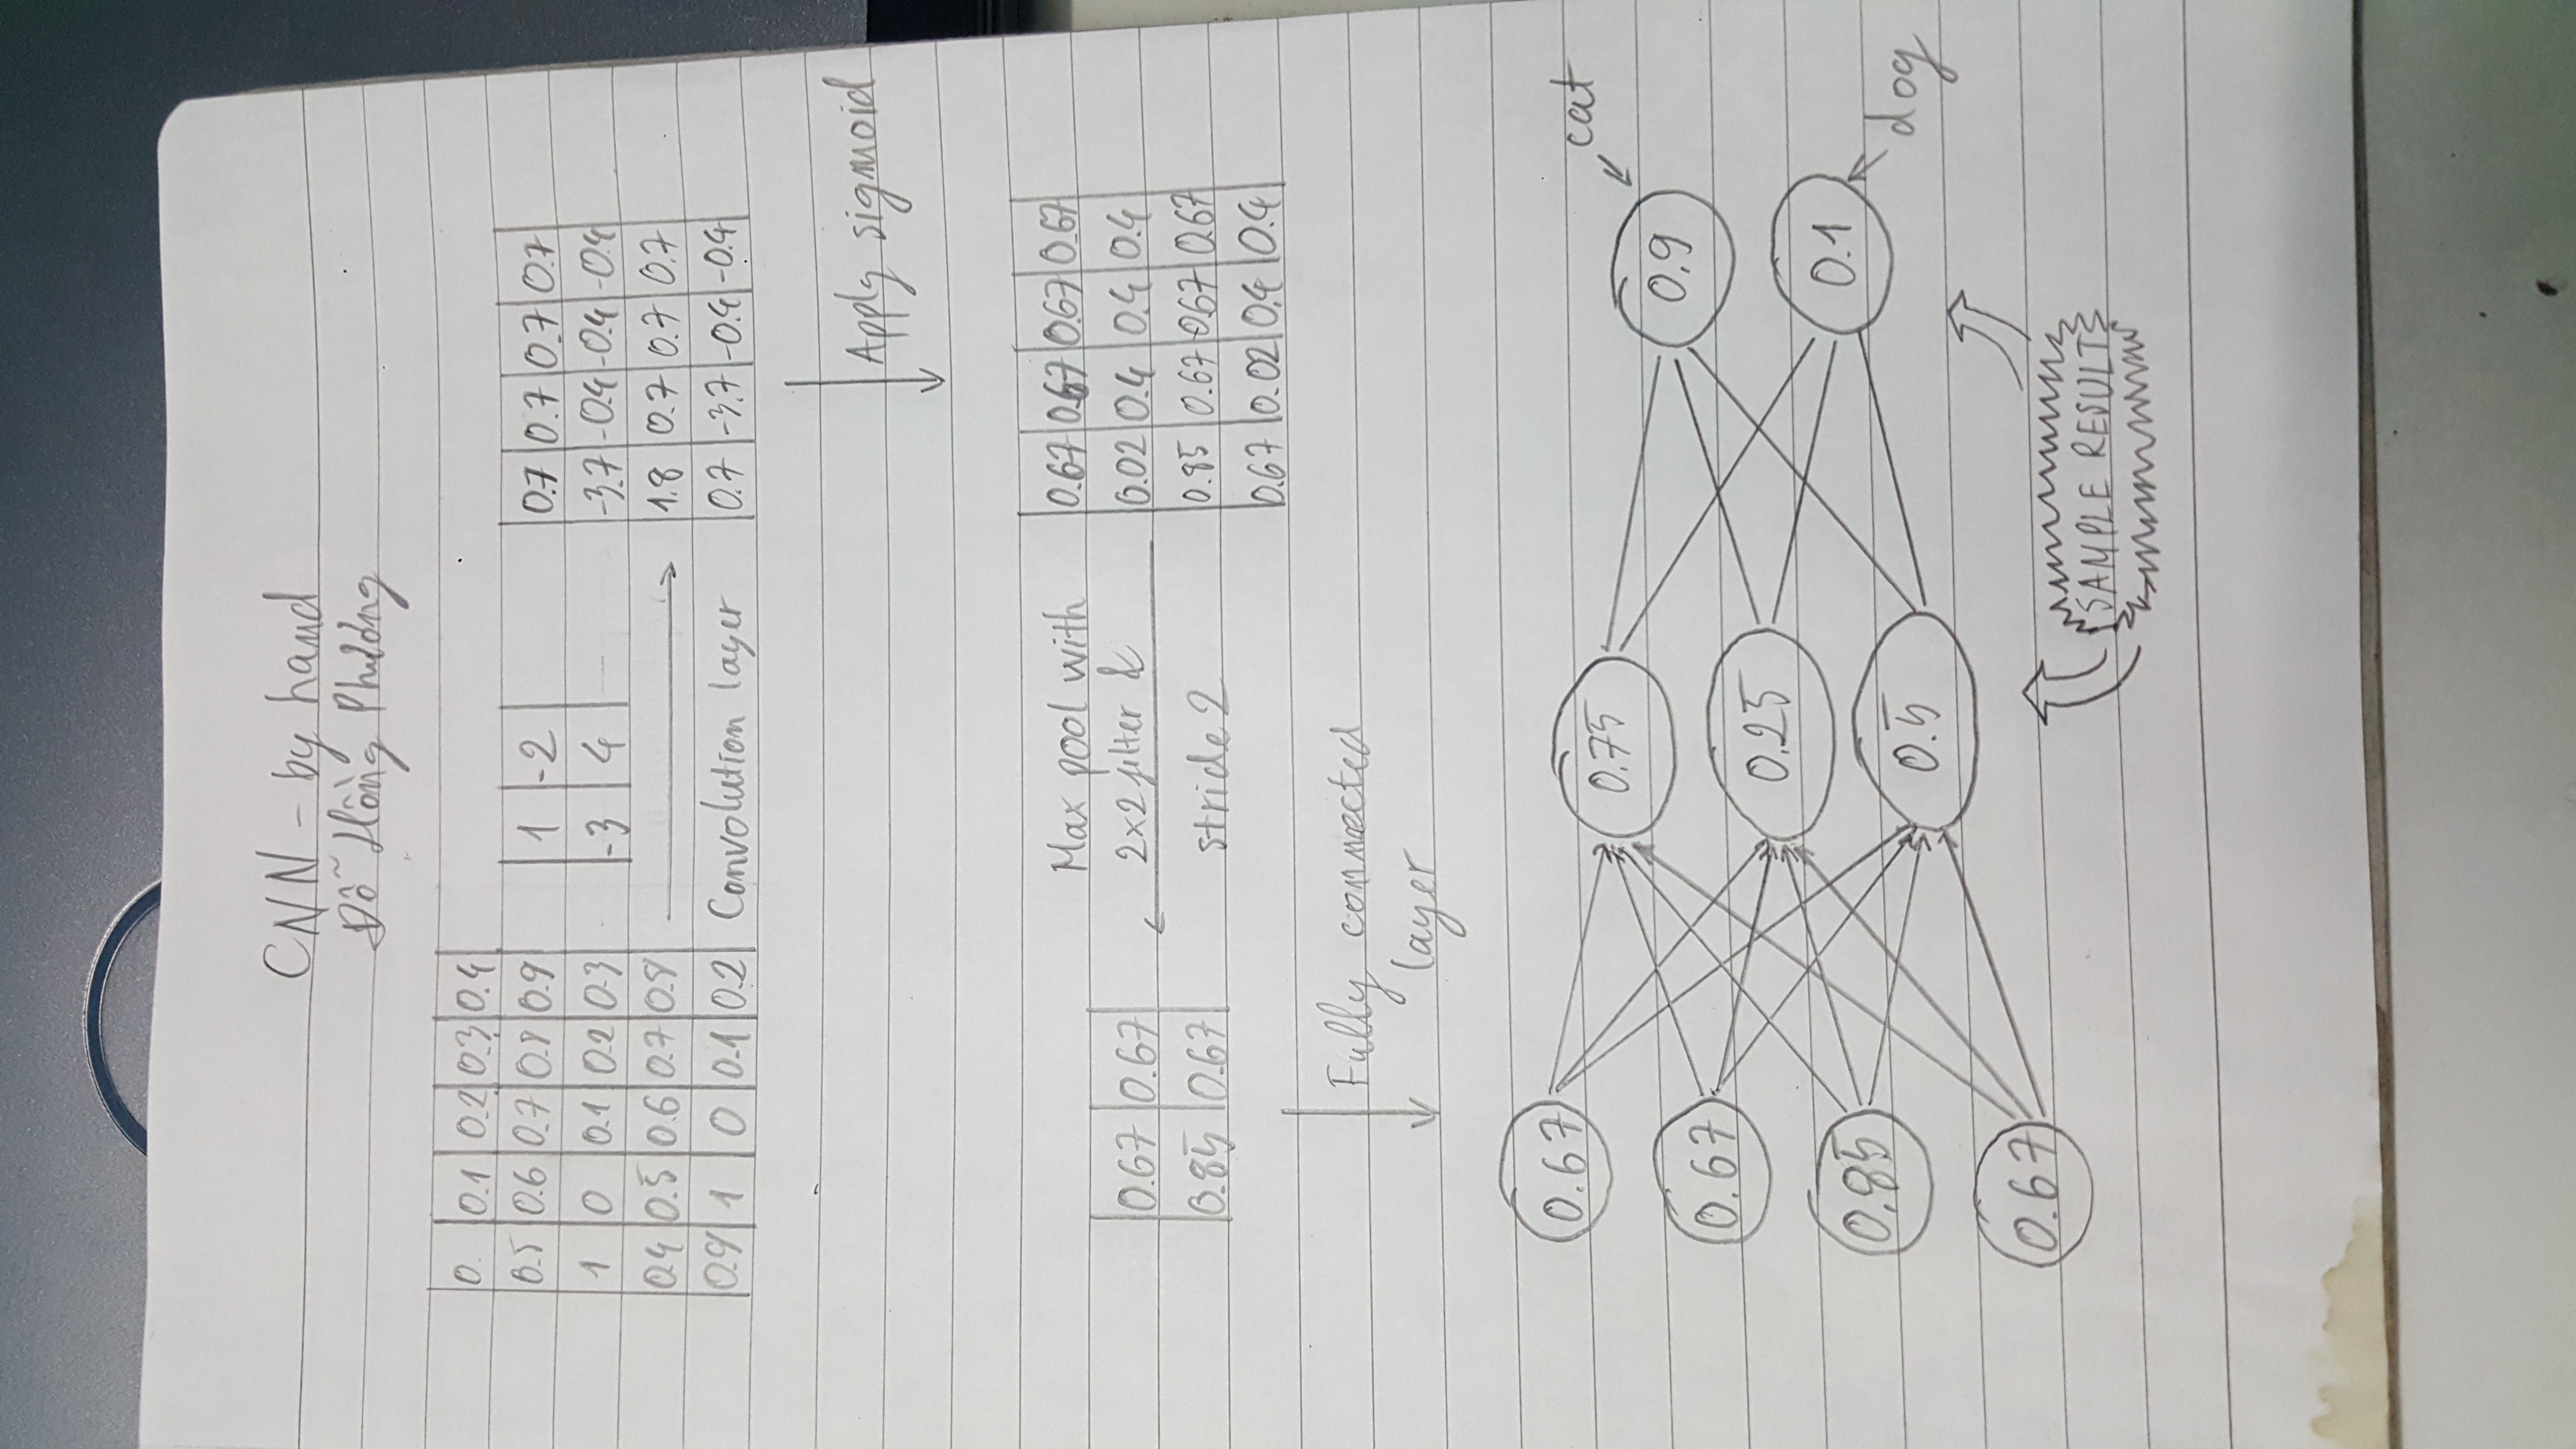 CNN - by hand
Đỗ Hồng Phương
0. 0.1 0.2 0.3 0.4
0.5 0.6 0.7 0.8 0.9
1 0 0.1 0.2 0.3
0.4 0.5 0.6 0.7 0.8
0.9 1 0 0.1 0.2
1 -2
-3 4
Convolution layer
0.7 0.7 0.7 0.7
-3.7 -0.4 -0.4 -0.4
1.8 0.7 0.7 0.7
0.7 -3.7 -0.4 -0.4
Apply sigmoid
0.67 0.67 0.67 0.67
0.02 0.4 0.4 0.4
0.85 0.67 0.67 0.67
0.67 0.02 0.4 0.4
Max pool with
2x2 filter &
stride 2
0.67 0.67
0.85 0.67
Fully connected
layer
0.67
0.67
0.85
0.67
0.75
0.25
0.5
cat
0.9
0.1
dog
SAMPLE RESULT